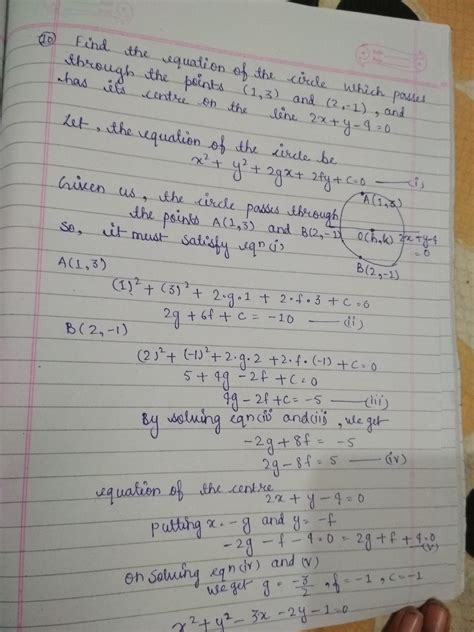 10) Find the equation of the circle which passes
through the points (1,3) and (2,-1), and
has its centre on the line 2x+y-4=0
Let, the equation of the circle be
x² + y² + 2gx + 2fy + c = 0 — (i)
Given us, the circle passes through
the points A(1,3) and B(2,-1)
So, it must satisfy eqn(i)
A(1,3)
O(h,k) 2x+y-4
=0
B(2,-1)
A(1,3)
(1)² + (3)² + 2·g·1 + 2·f·3 + c = 0
2g + 6f + c = -10 — (ii)
B(2,-1)
(2)² + (-1)² + 2·g·2 + 2·f·(-1) + c = 0
5 + 4g - 2f + c = 0
4g - 2f + c = -5 — (iii)
By solving eqn(ii) and (iii), we get
-2g + 8f = -5
2g - 8f = 5 — (iv)
equation of the centre
2x + y - 4 = 0
putting x = -g and y = -f
-2g - f - 4 = 0 = 2g + f + 4 = 0
(v)
On solving eqn(iv) and (v)
we get g = -3/2, f = -1, c = -1
x² + y² - 3x - 2y - 1 = 0